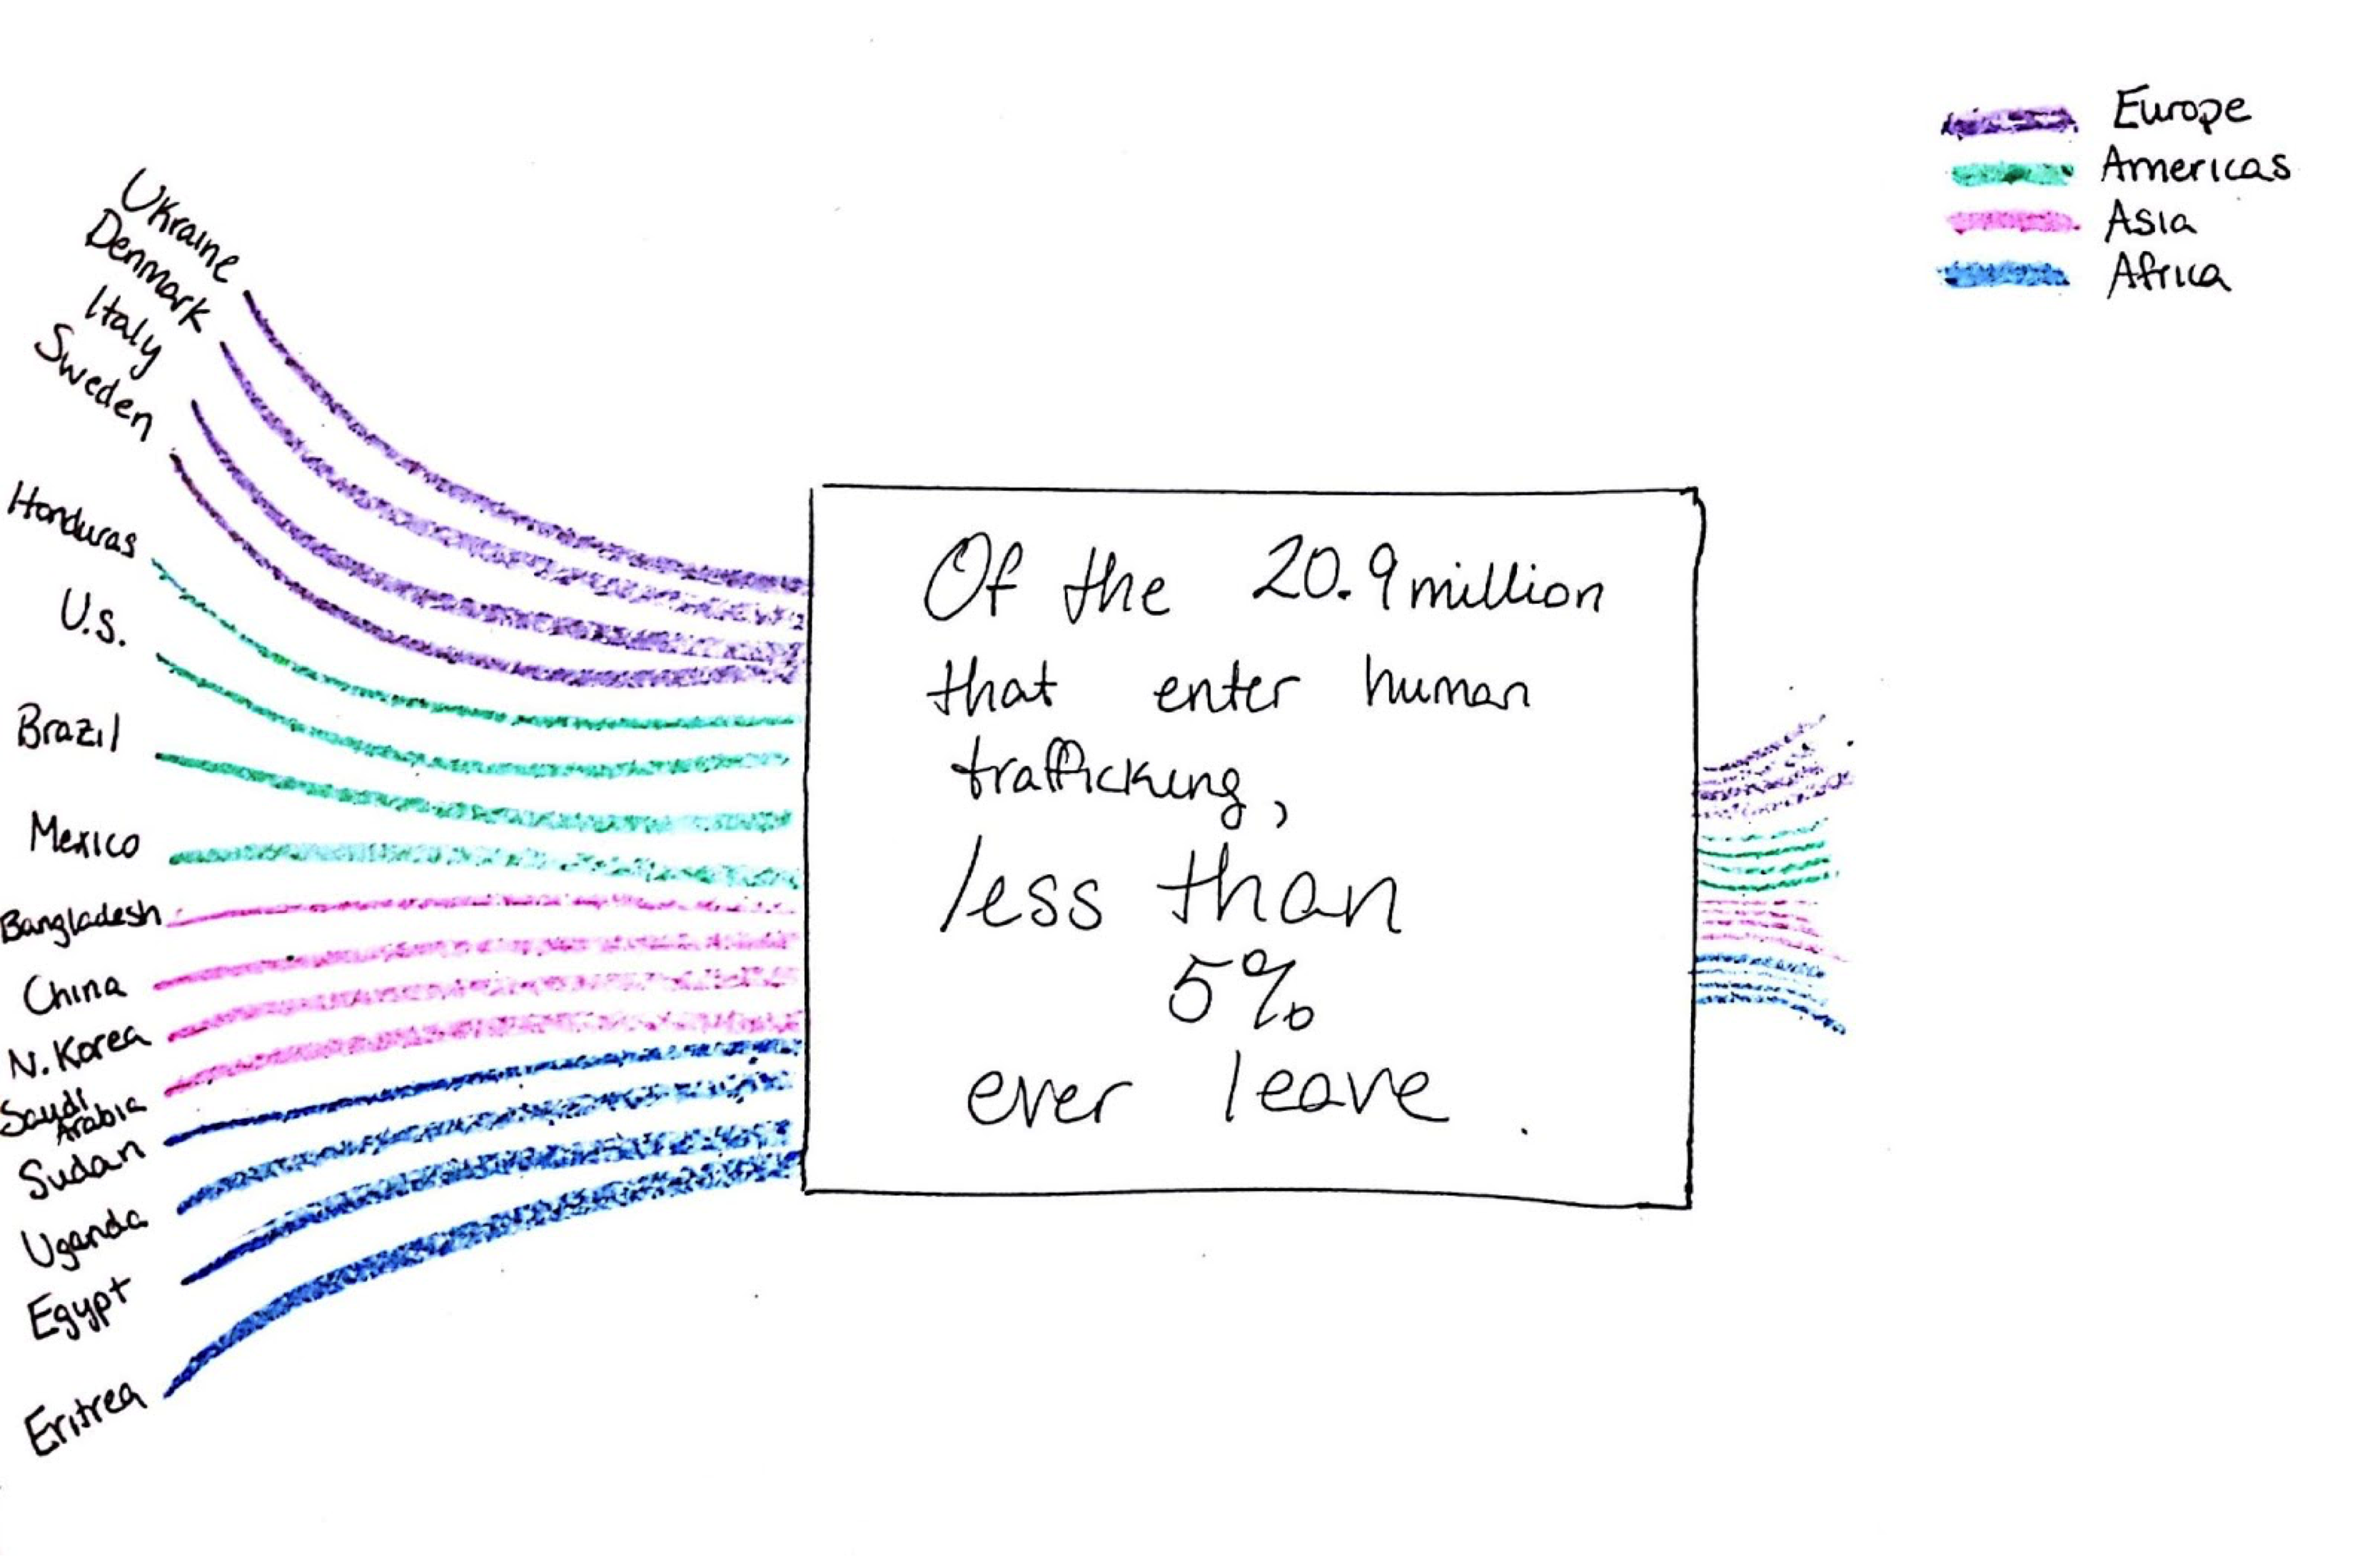 Europe
Americas
Asia
Africa
Ukraine
Denmark
Italy
Sweden
Honduras
U.S.
Brazil
Mexico
Bangladesh
China
N. Korea
Saudi
Arabia
Sudan
Uganda
Egypt
Eritrea
Of the 20.9 million
that enter human
trafficking,
less than
5%
ever leave.